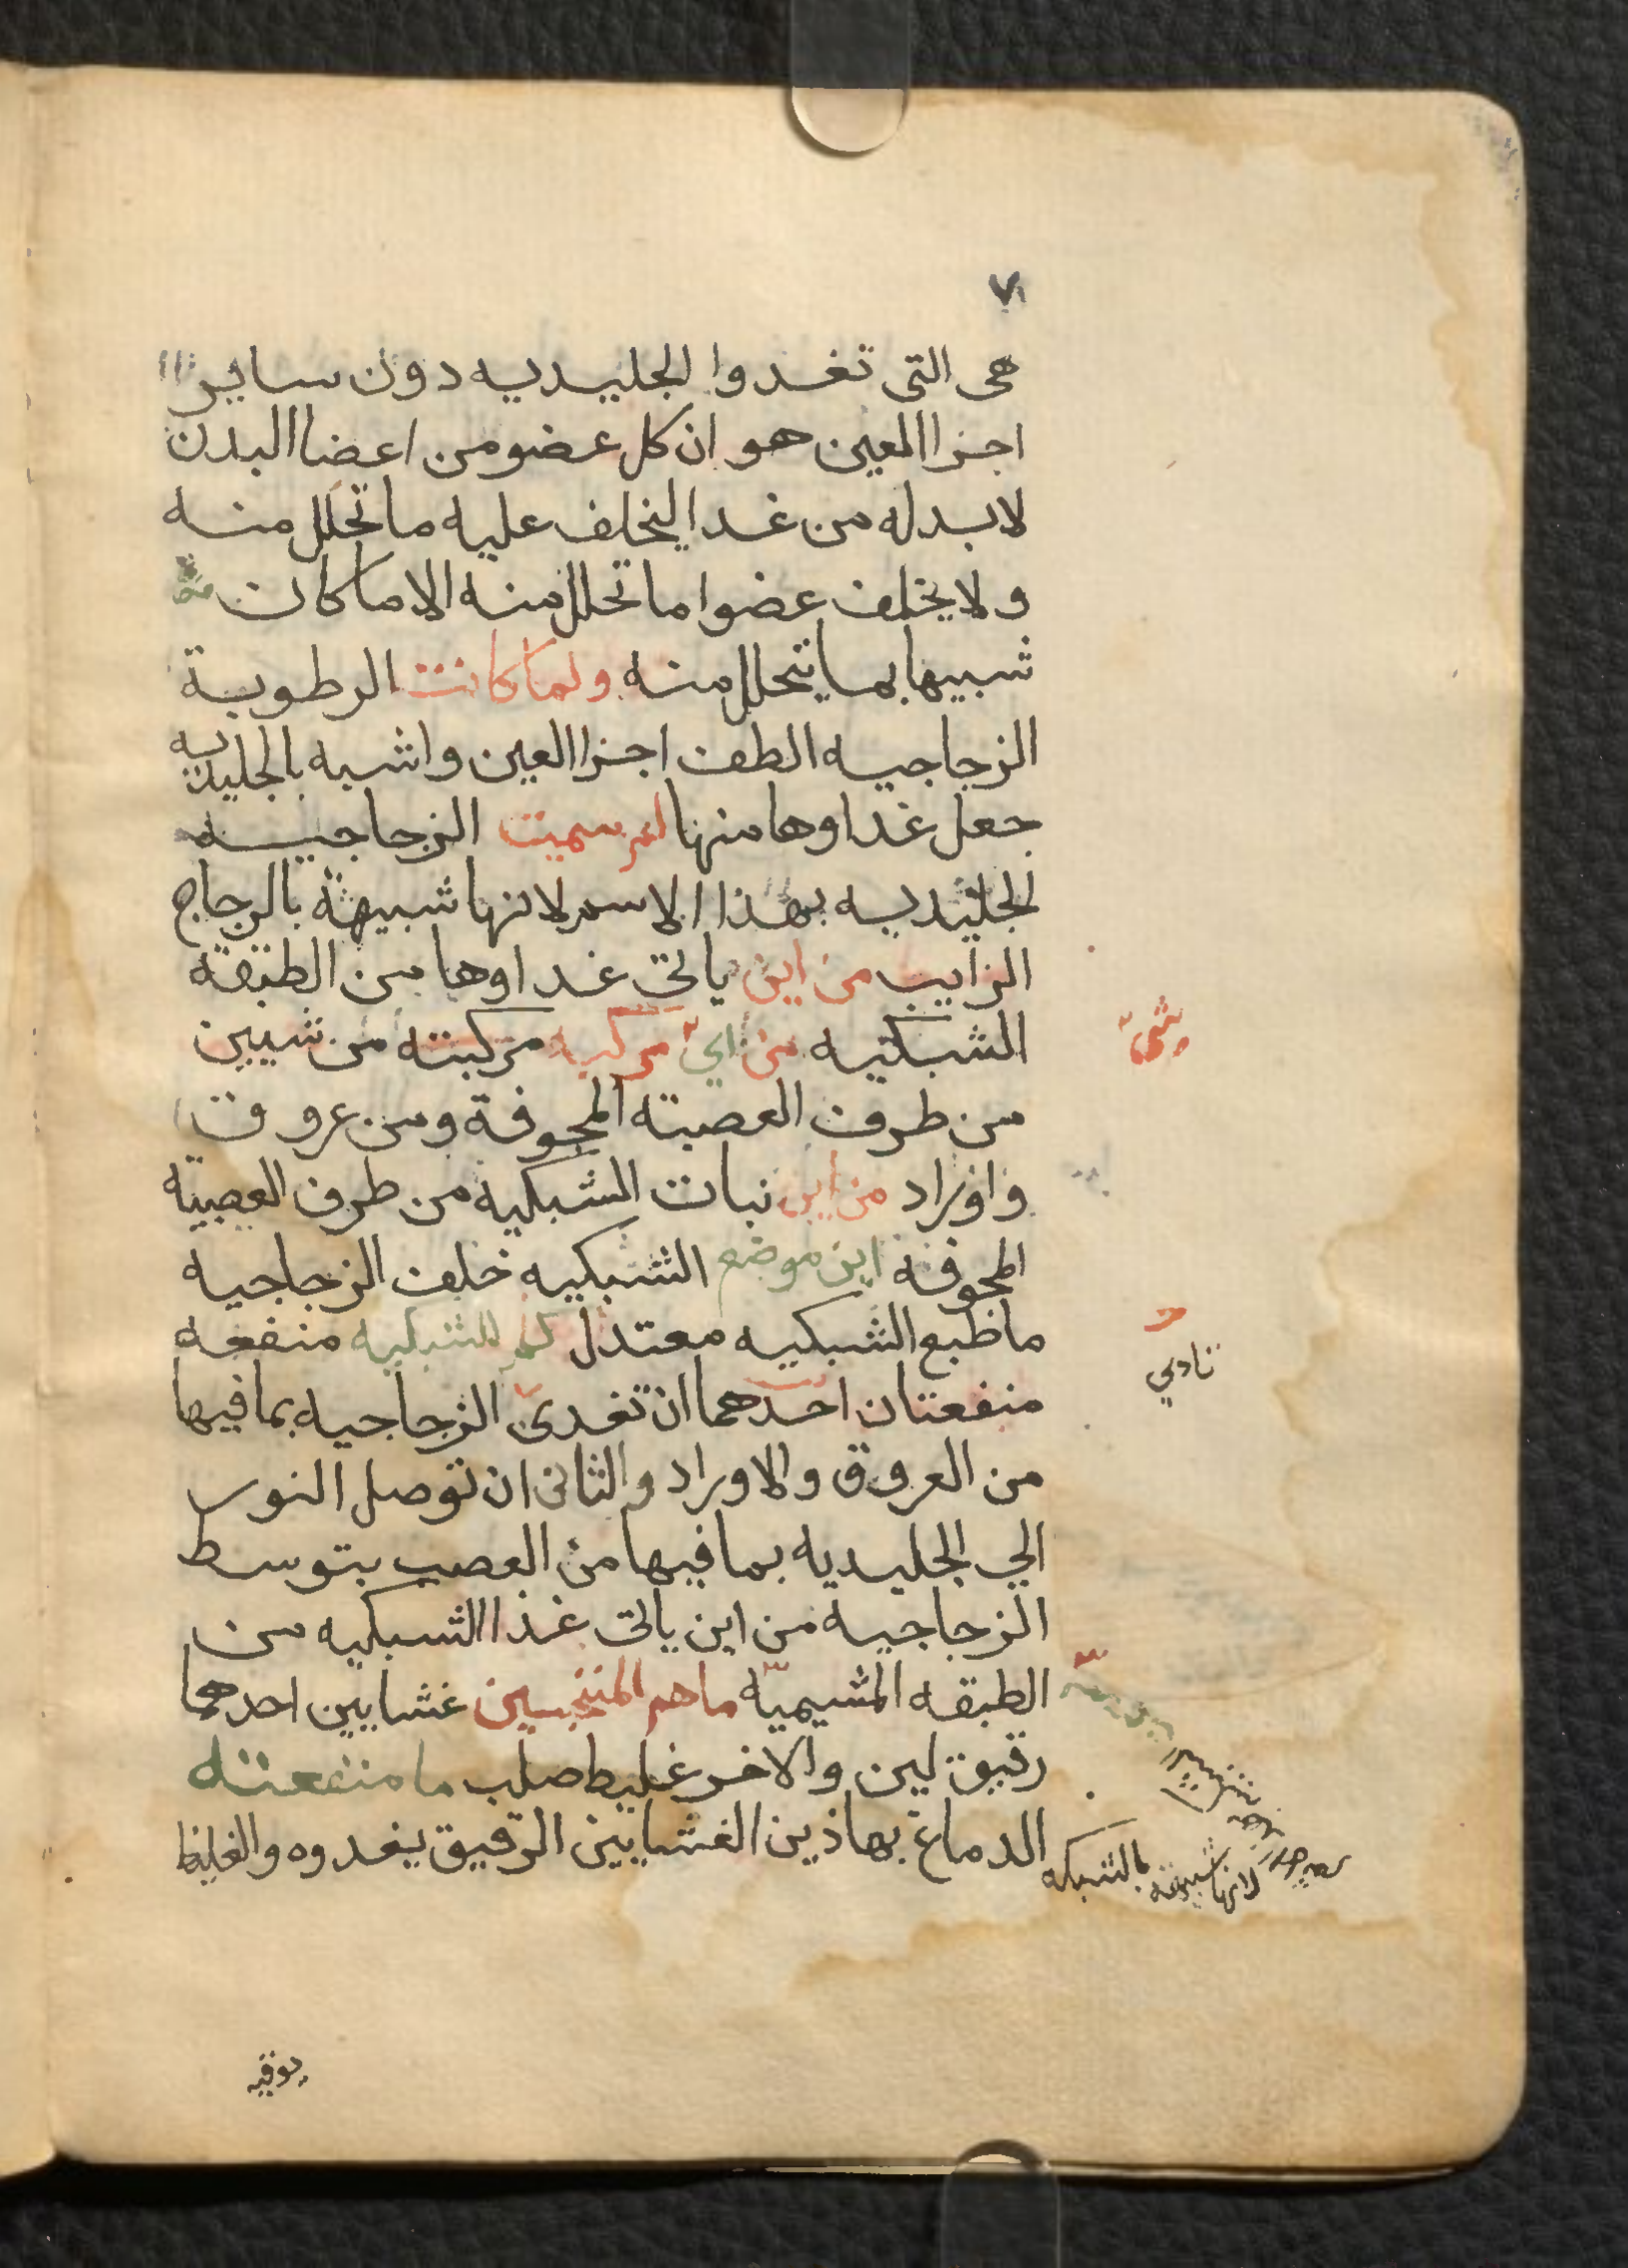 ٧
هى التى تغدوا الجليديه دون ساير
اجزا العين هو ان كل عضو من اعضا البدن
لابد له من غدا ليخلف عليه ما تحلل منه
ولا يخلف عضوا ما تحلل منه الا ما كان
شبيها بما يتحلل منه ولما كانت الرطوبة
الزجاجيه الطف اجزا العين واشبه بالجليديه
جعل غداوها منها لم سميت الزجاجيه
الجليديه بهذا الاسم لانها شبيهة بالزجاج
الزايب من اين ياتى غداوها من الطبقة
الشبكيه من اي مركبه مركبته من شيين
شيّ
من طرف العصبته المجوفة ومن عروق
واوراد من اين نبات الشبكيه من طرف العصبيّه
المجوفه اين موضع الشبكيه خلف الزجاجيه
ما طبع الشبكيه معتدل كم للشبكيه منفعه
منفعتان احدهما ان تغدى الزجاجيه بما فيها
تادي
من العروق والاوراد والثانى ان توصل النور
الي الجليديه بما فيها من العصب بتوسط
الزجاجيه من اين ياتى غذا الشبكيه من
الطبقه المشيميّه ما هم المنتخبسين غشايين احدهما
رقيق لين والاخر غليط صلب ما منفعته
الدماغ بهاذين الغشايين الرقيق يغدوه والغليظ
لانها شبيهة بالشبكه
يوقيه